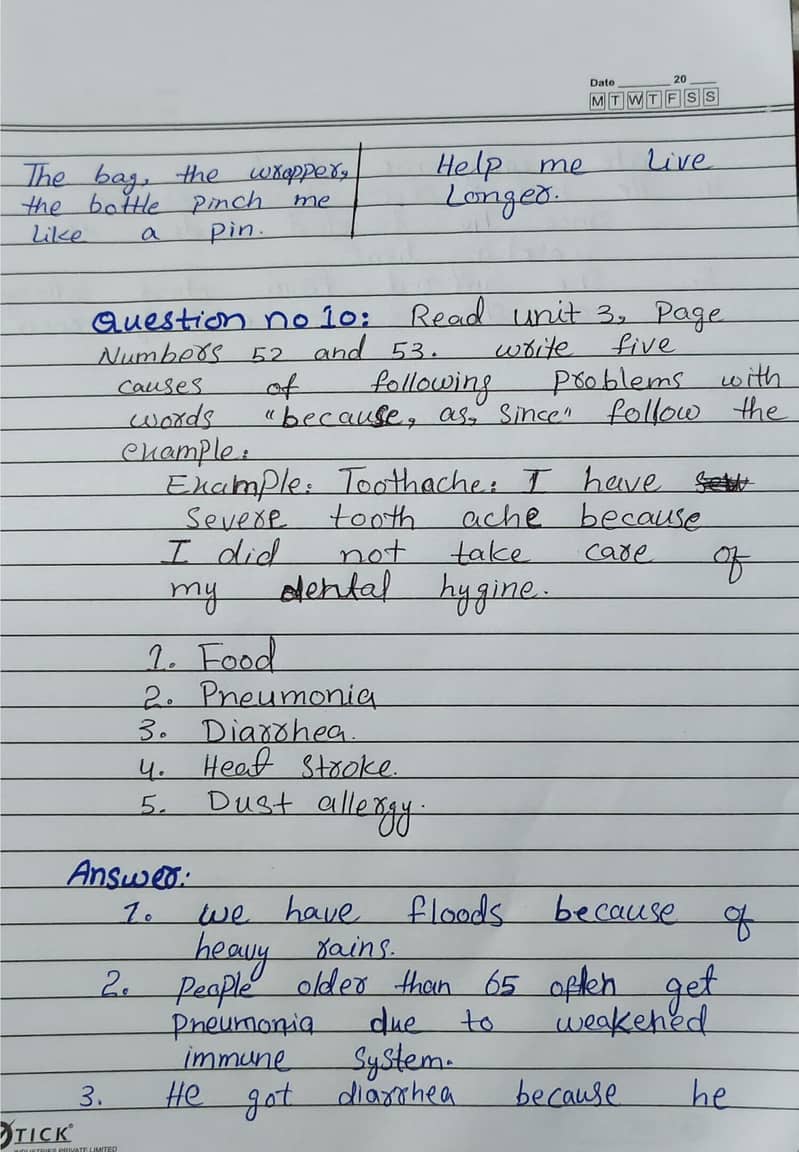 Date ______ 20 ___
M T W T F S S
The bag, the wrapper,
the bottle pinch me
Like a pin.
Help me Live
Longer.
Question no 10: Read unit 3, Page
Numbers 52 and 53. write five
causes of following Problems with
words "because, as, Since" follow the
example:
Example: Toothache: I have
Severe tooth ache because
I did not take care of
my dental hygine.
1. Food
2. Pneumonia
3. Diarrhea.
4. Heat Stroke.
5. Dust allergy.
Answer:
1. we have floods because of
heavy rains.
2. People older than 65 often get
Pneumonia due to weakened
immune System.
3. He got diarrhea because he
TICK
INDUSTRIES PRIVATE LIMITED